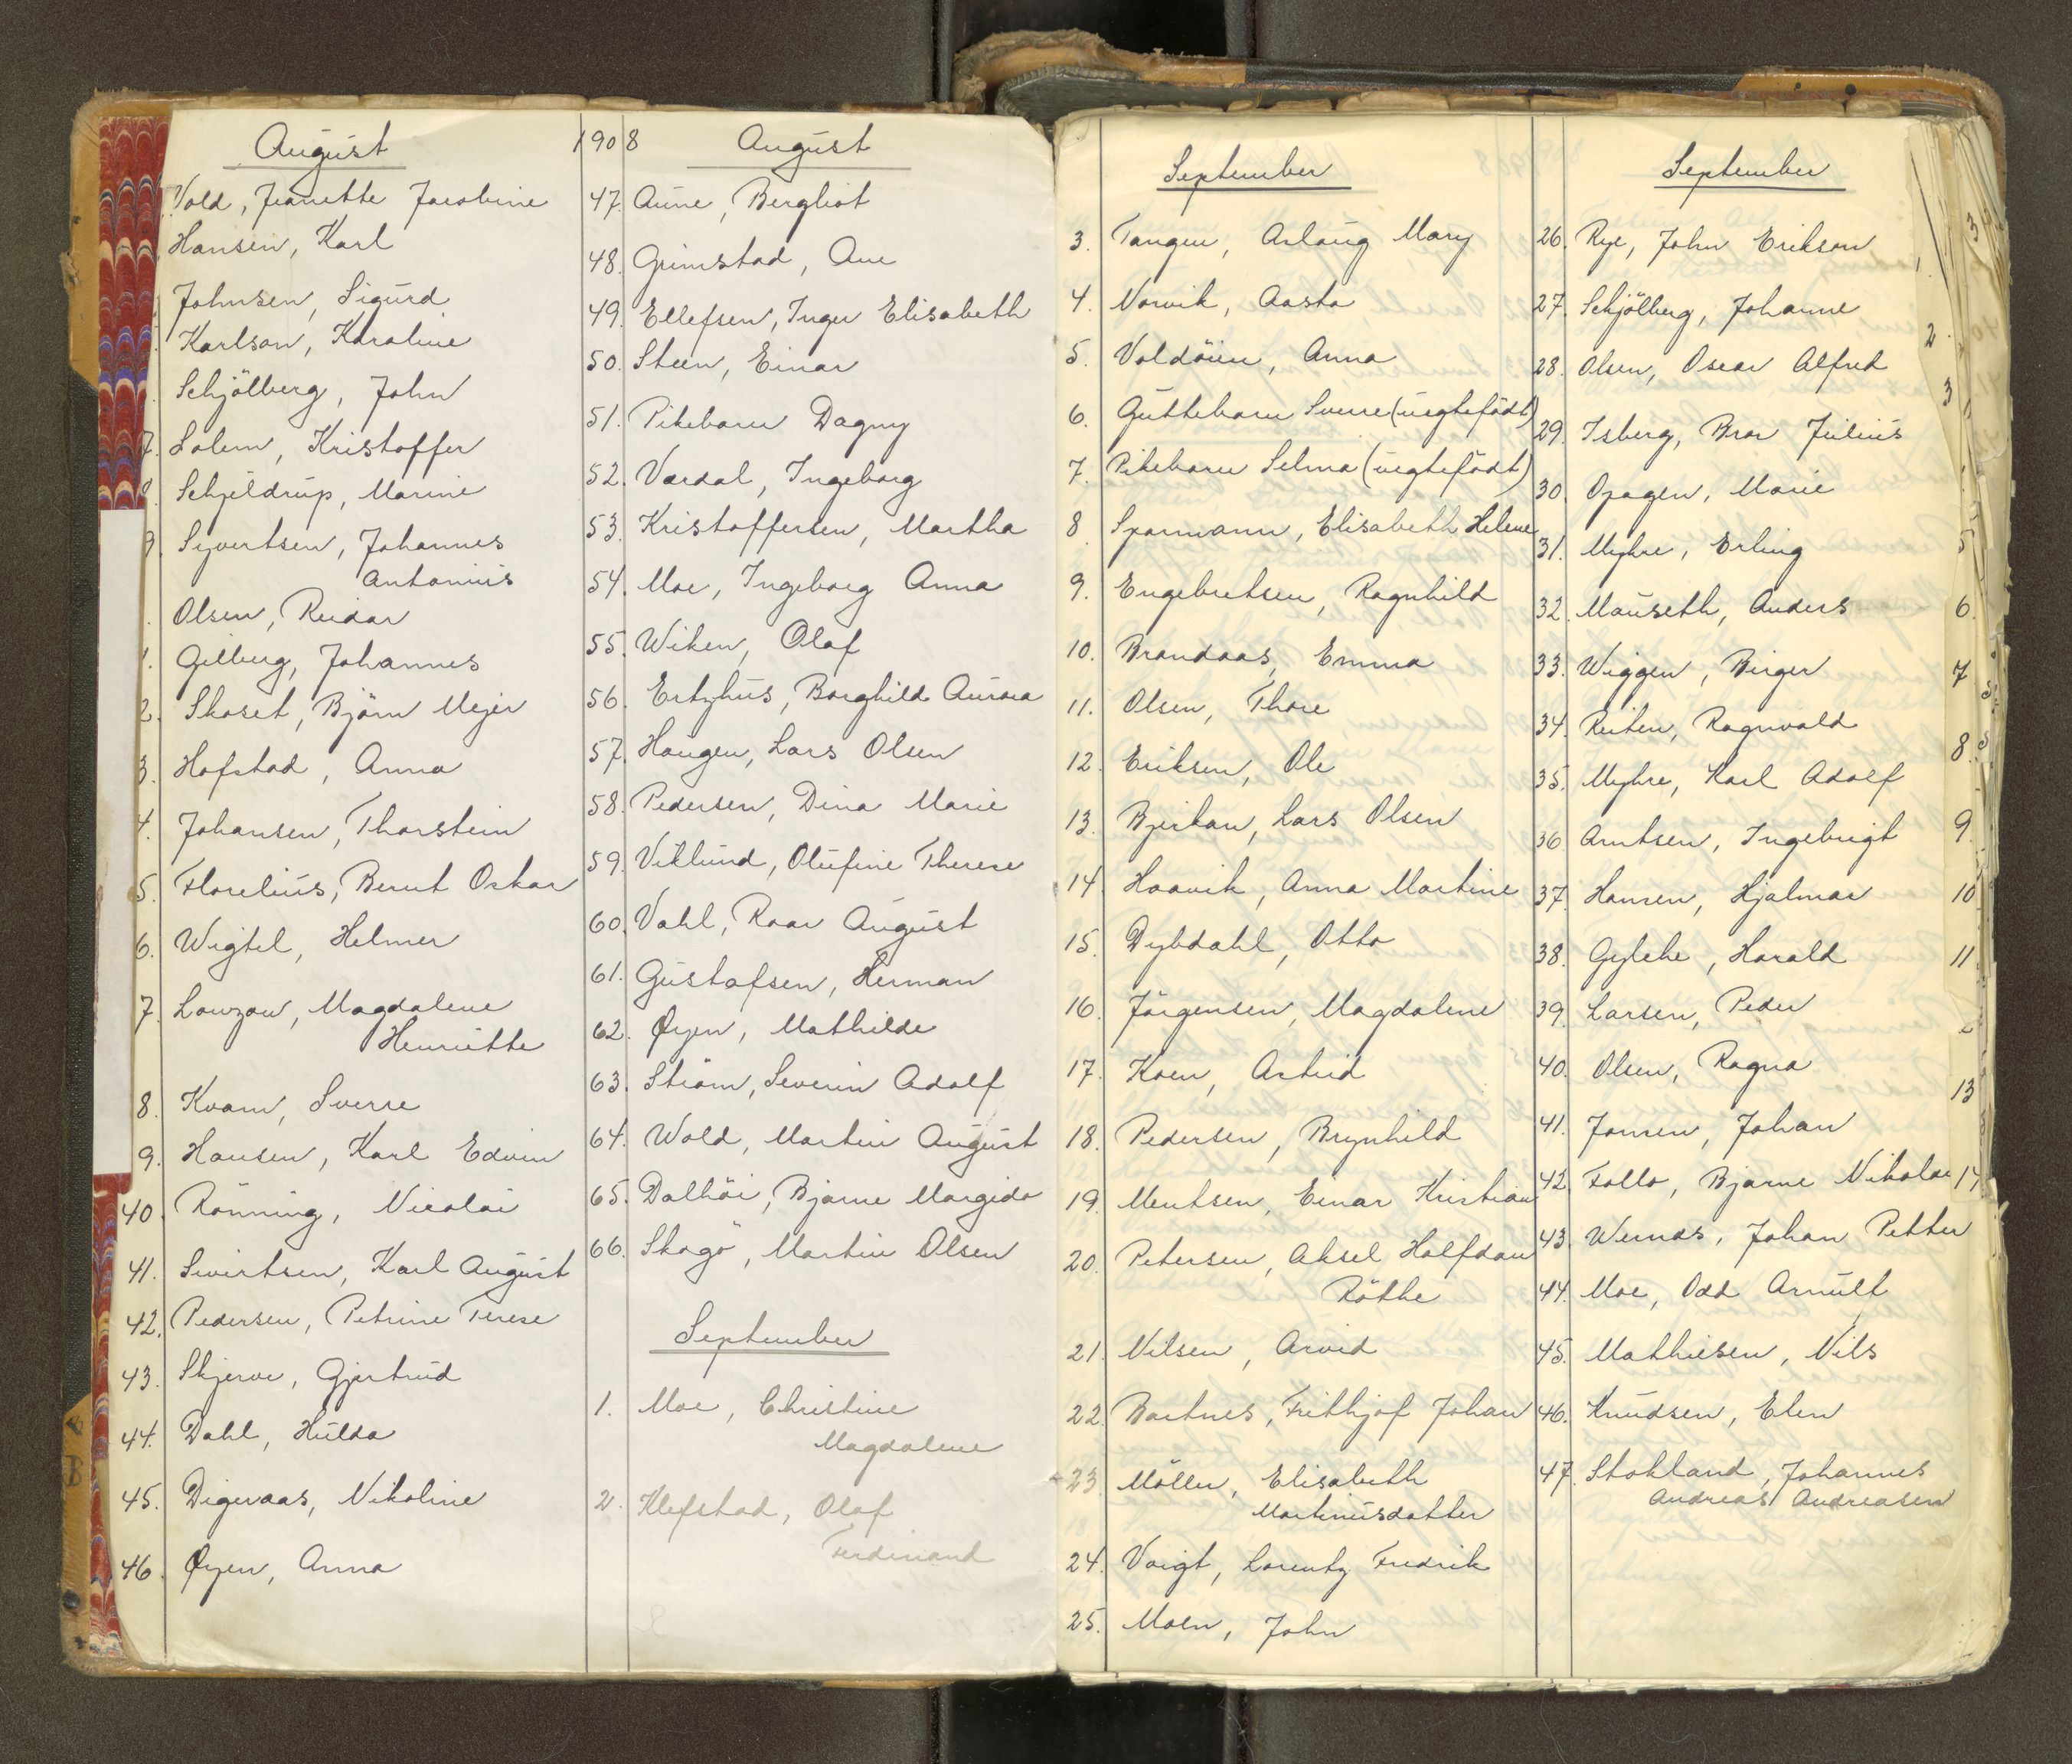 1908
August
Vold, Jeanette Jacobine
Hansen, Karl
Johnsen, Sigurd
Karlson, Karoline
Schjölberg, John
7. Solem, Kristoffer
Schjeldrup, Marine
9. Syvertsen, Johannes
Antonius
Olsen, Reidar
1. Gilberg, Johannes
2. Skoset, Björn Mejer
3. Hofstad, Anna
4. Johansen, Thorstein
5. Florelius, Bernt Oskar
6. Wigtel, Helmer
7. Lowzow, Magdalene
Henriette
8. Kvam, Sverre
9. Hansen, Karl Edvin
40. Rönning, Nicolai
41. Sivertsen, Karl August
42. Pedersen, Petrine Terese
43. Skjerve, Gjertrud
44. Dahl, Hulda
45. Digeraas, Nikoline
46. Øyen, Anna
August
47. Aune, Bergliot
48. Grimstad, Ane
49. Ellefsen, Inger Elisabeth
50. Steen, Einar
51. Pikebarn Dagny
52. Værdal, Ingeborg
53. Kristoffersen, Martha
54. Moe, Ingeborg Anna
55. Wiken, Olaf
56. Ertzhus, Borghild Aurora
57. Haugen, Lars Olsen
58. Pedersen, Dina Marie
59. Viklund, Olufine Therese
60. Vahl, Roar August
61. Gustafsen, Herman
62. Øyen, Mathilde
63. Ström, Severin Adolf
64. Wold, Martin August
65. Dalhöi, Bjarne Margido
66. Skogö, Martin Olsen
September
1. Moe, Christine
Magdalene
2. Klefstad, Olaf
Ferdinand
September
3. Tangen, Aslaug Mary
4. Norvik, Aasta
5. Voldöien, Anna
6. Guttebarn Sverre (uegtefödt)
7. Pikebarn Selma (uegtefödt)
8. Sparmann, Elisabeth Helene
9. Engebretsen, Ragnhild
10. Brandaas, Emma
11. Olsen, Thore
12. Eriksen, Ole
13. Bjerkan, Lars Olsen
14. Haavik, Anna Martine
15. Dybdahl, Otto
16. Jörgensen, Magdalene
17. Koen, Astrid
18. Pedersen, Brynhild
19. Mentsen, Einar Kristian
20. Petersen, Aksel Halfdan
Röthe
21. Nilsen, Arvid
22. Bartnes, Frithjof Johan
23. Möller, Elisabeth
Martinusdatter
24. Voigt, Lorentz Fredrik
25. Moen, John
September
26. Rye, John Erikson
27. Schjölberg, Johanne
28. Olsen, Oscar Alfred
29. Isberg, Bror Julius
30. Opagen, Marie
31. Myhre, Erling
32. Mauseth, Anders
33. Wiggen, Birger
34. Reiten, Ragnvald
35. Myhre, Karl Adolf
36 Arntsen, Ingebrigt
37. Hansen, Hjalmar
38. Gylche, Harald
39. Larsen, Peder
40. Olsen, Ragna
41. Jonsen, Johan
42. Follo, Bjarne Nikolai
43. Wernæs, Johan Petter
44. Moe, Odd Arnulf
45. Mathiesen, Nils
46. Knudsen, Elen
47. Stokland, Johannes
Andreas Andreasen
1.
2.
3
5
6.
7
8.
9.
10
11
13
14
3